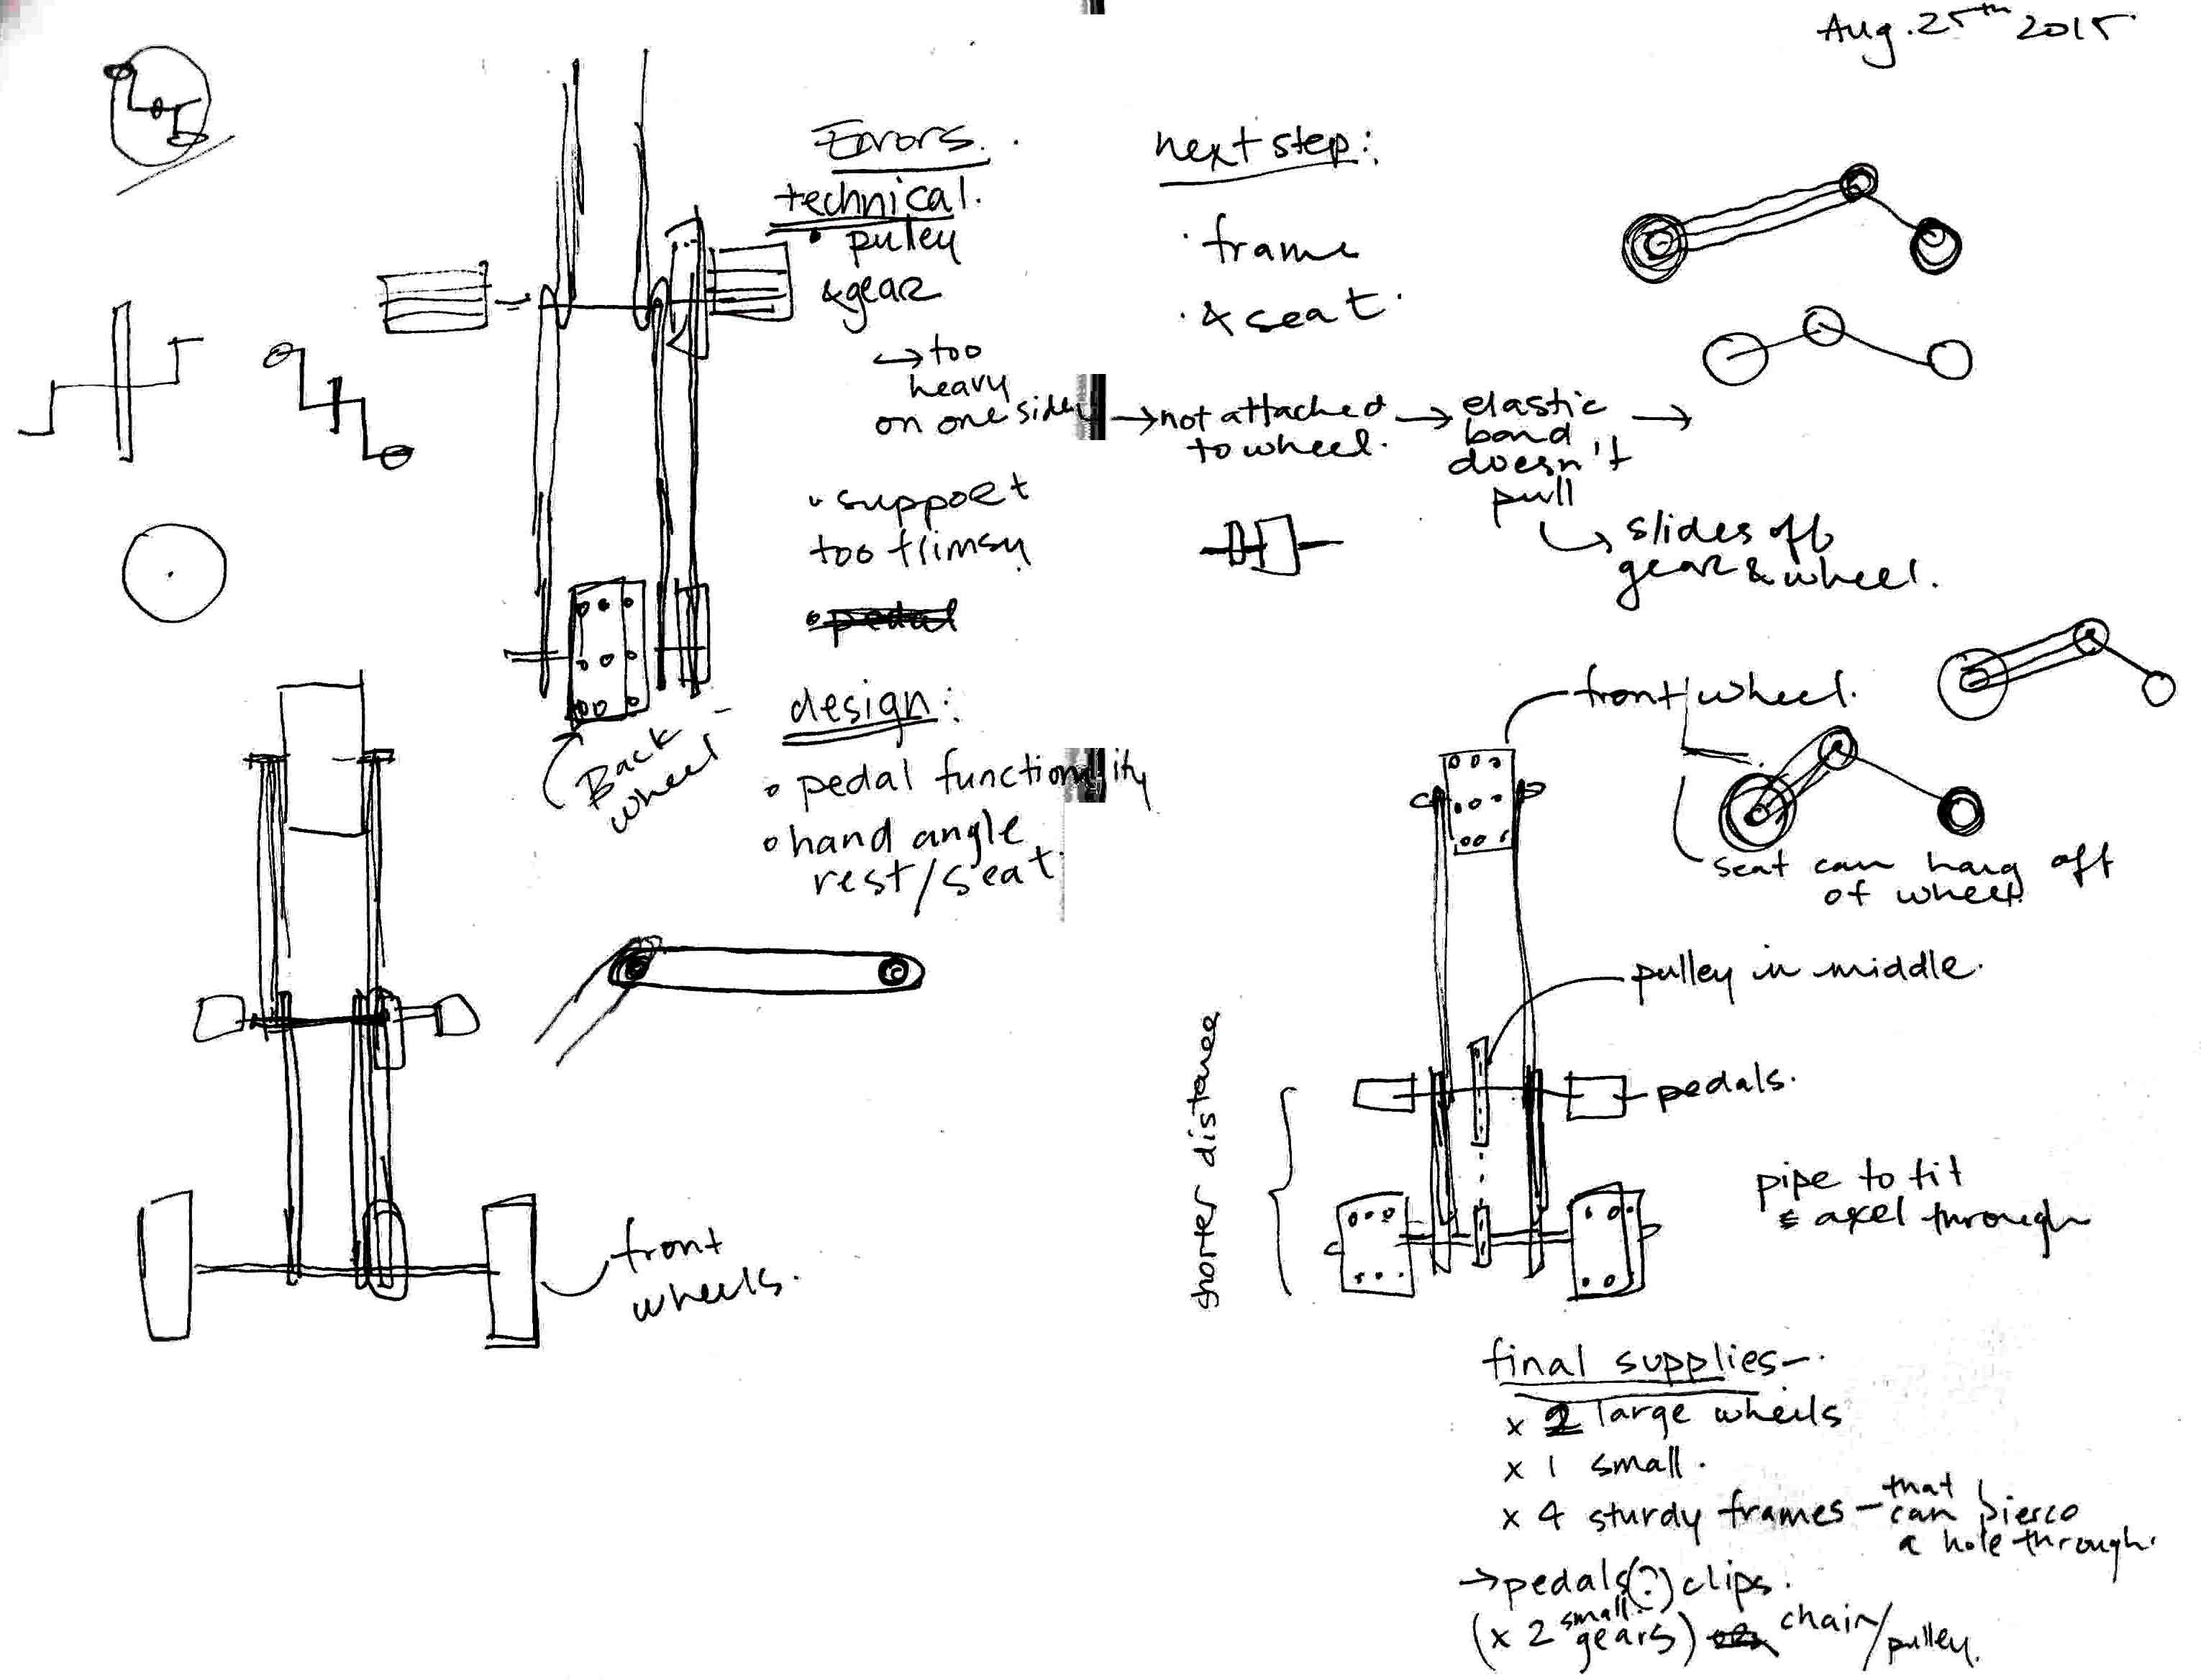 Aug. 25th 2015
Errors.
technical.
• pulley
& gear
→ too
heavy
on one side
→ not attached
to wheel.
→ elastic
band
doesn't
pull
→
↳ slides off
gear & wheel.
• support
too flimsy
• pedal
design:
• pedal functionality
• hand angle
rest/seat.
next step:
• frame
• & seat.
Back
wheel
front
wheels.
front wheel.
seat can hang off
of wheel.
pulley in middle.
pedals.
shorter distance
pipe to fit
axel through
final supplies-
x 2 large wheels
x 1 small.
x 4 sturdy frames - that
can pierce
a hole through.
→ pedals(?) clips.
(x 2 small gears) chain/pulley.